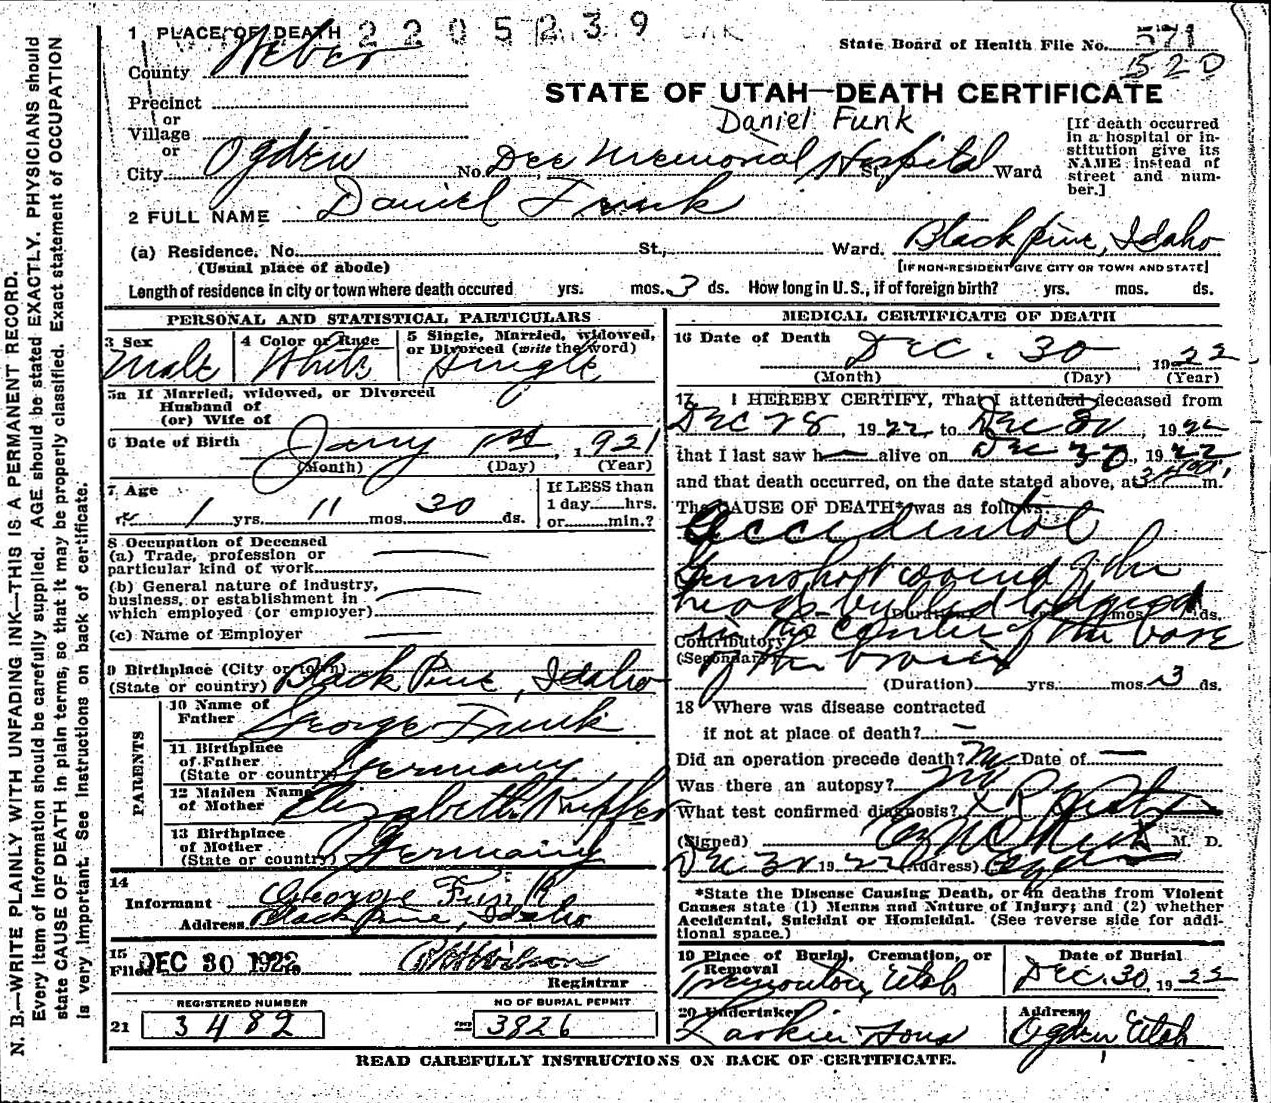 1 PLACE OF DEATH
2205239
State Board of Health File No. 571
520
County Weber
STATE OF UTAH—DEATH CERTIFICATE
Precinct
or
Village
or
Daniel Funk
City Ogden No. Dee Memorial Hospital St, Ward
[If death occurred
in a hospital or in-
stitution give its
NAME instead of
street and num-
ber.]
2 FULL NAME Daniel Funk
(a) Residence, No. St, Ward. Black Pine, Idaho
(Usual place of abode) [IF NON-RESIDENT GIVE CITY OR TOWN AND STATE]
Length of residence in city or town where death occured yrs. mos. 3 ds. How long in U.S., if of foreign birth? yrs. mos. ds.
PERSONAL AND STATISTICAL PARTICULARS
3 Sex
Male
4 Color or Race
White
5 Single, Married, widowed,
or Divorced (write the word)
Single
5a If Married, widowed, or Divorced
Husband of
(or) Wife of
6 Date of Birth Jany 1st, 1921
(Month) (Day) (Year)
7 Age
1 yrs. 11 mos. 30 ds.
If LESS than
1 day hrs.
or min.?
8 Occupation of Deceased
(a) Trade, profession or
particular kind of work
(b) General nature of industry,
business, or establishment in
which employed (or employer)
(c) Name of Employer
9 Birthplace (City or town)
(State or country) Black Pine, Idaho
PARENTS
10 Name of
Father George Funk
11 Birthplace
of Father
(State or country) Germany
12 Maiden Name
of Mother Elizabeth
13 Birthplace
of Mother
(State or country) Germany
14
Informant George Funk
Address Black Pine, Idaho
15
Filed DEC 30 1922
Registrar
REGISTERED NUMBER
21 3482
NO OF BURIAL PERMIT
22 3826
MEDICAL CERTIFICATE OF DEATH
16 Date of Death Dec. 30 1922
(Month) (Day) (Year)
17 I HEREBY CERTIFY, That I attended deceased from
Dec 28, 1922, to Dec 30, 1922
that I last saw h alive on Dec 30, 1922
and that death occurred, on the date stated above, at m.
The CAUSE OF DEATH* was as follows:
Accidental
Gunshot wound of the
head bullet lodged
(Duration) yrs. mos. ds.
in the center of the base
Contributory
(Secondary) of the brain
(Duration) yrs. mos. 3 ds.
18 Where was disease contracted
if not at place of death?
Did an operation precede death? No Date of
Was there an autopsy? No
What test confirmed diagnosis? X R
(Signed) M. D.
Dec 30 1922 (Address) Ogden
*State the Disease Causing Death, or in deaths from Violent
Causes state (1) Means and Nature of Injury; and (2) whether
Accidental, Suicidal or Homicidal. (See reverse side for addi-
tional space.)
19 Place of Burial, Cremation, or
Removal
Tremonton, Utah
Date of Burial
Dec. 30, 1922
20 Undertaker
Larkin Sons
Address
Ogden Utah
READ CAREFULLY INSTRUCTIONS ON BACK OF CERTIFICATE.
N. B.—WRITE PLAINLY WITH UNFADING INK—THIS IS A PERMANENT RECORD.
Every item of information should be carefully supplied. AGE should be stated EXACTLY. PHYSICIANS should
state CAUSE OF DEATH in plain terms, so that it may be properly classified. Exact statement of OCCUPATION
is very important. See instructions on back of certificate.